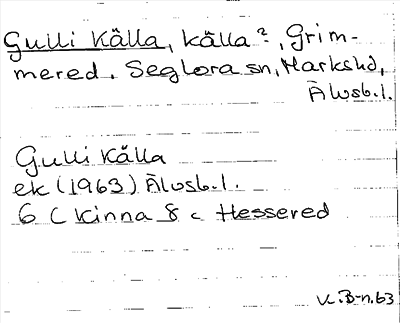 Gulli Källa, källa?, Grim-
mered. Seglora sn, Markshd,
Älvsb.l.
Gulli Källa
ek (1963) Älvsb.l.
6 C Kinna 8 c Hessered
V.B-n.63